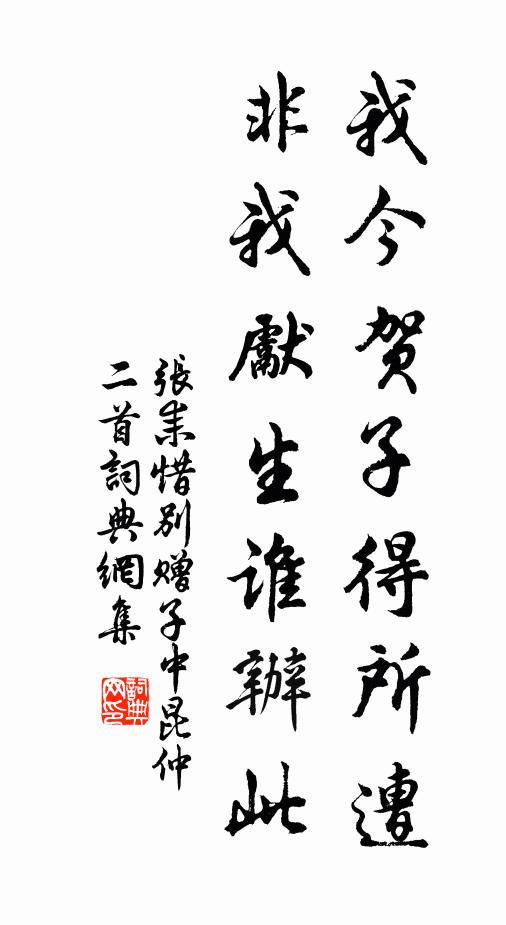 我今贺子得所遭
非我獻生谁辦此
張耒惜别赠子中昆仲
二首詞典網集
詞典网印